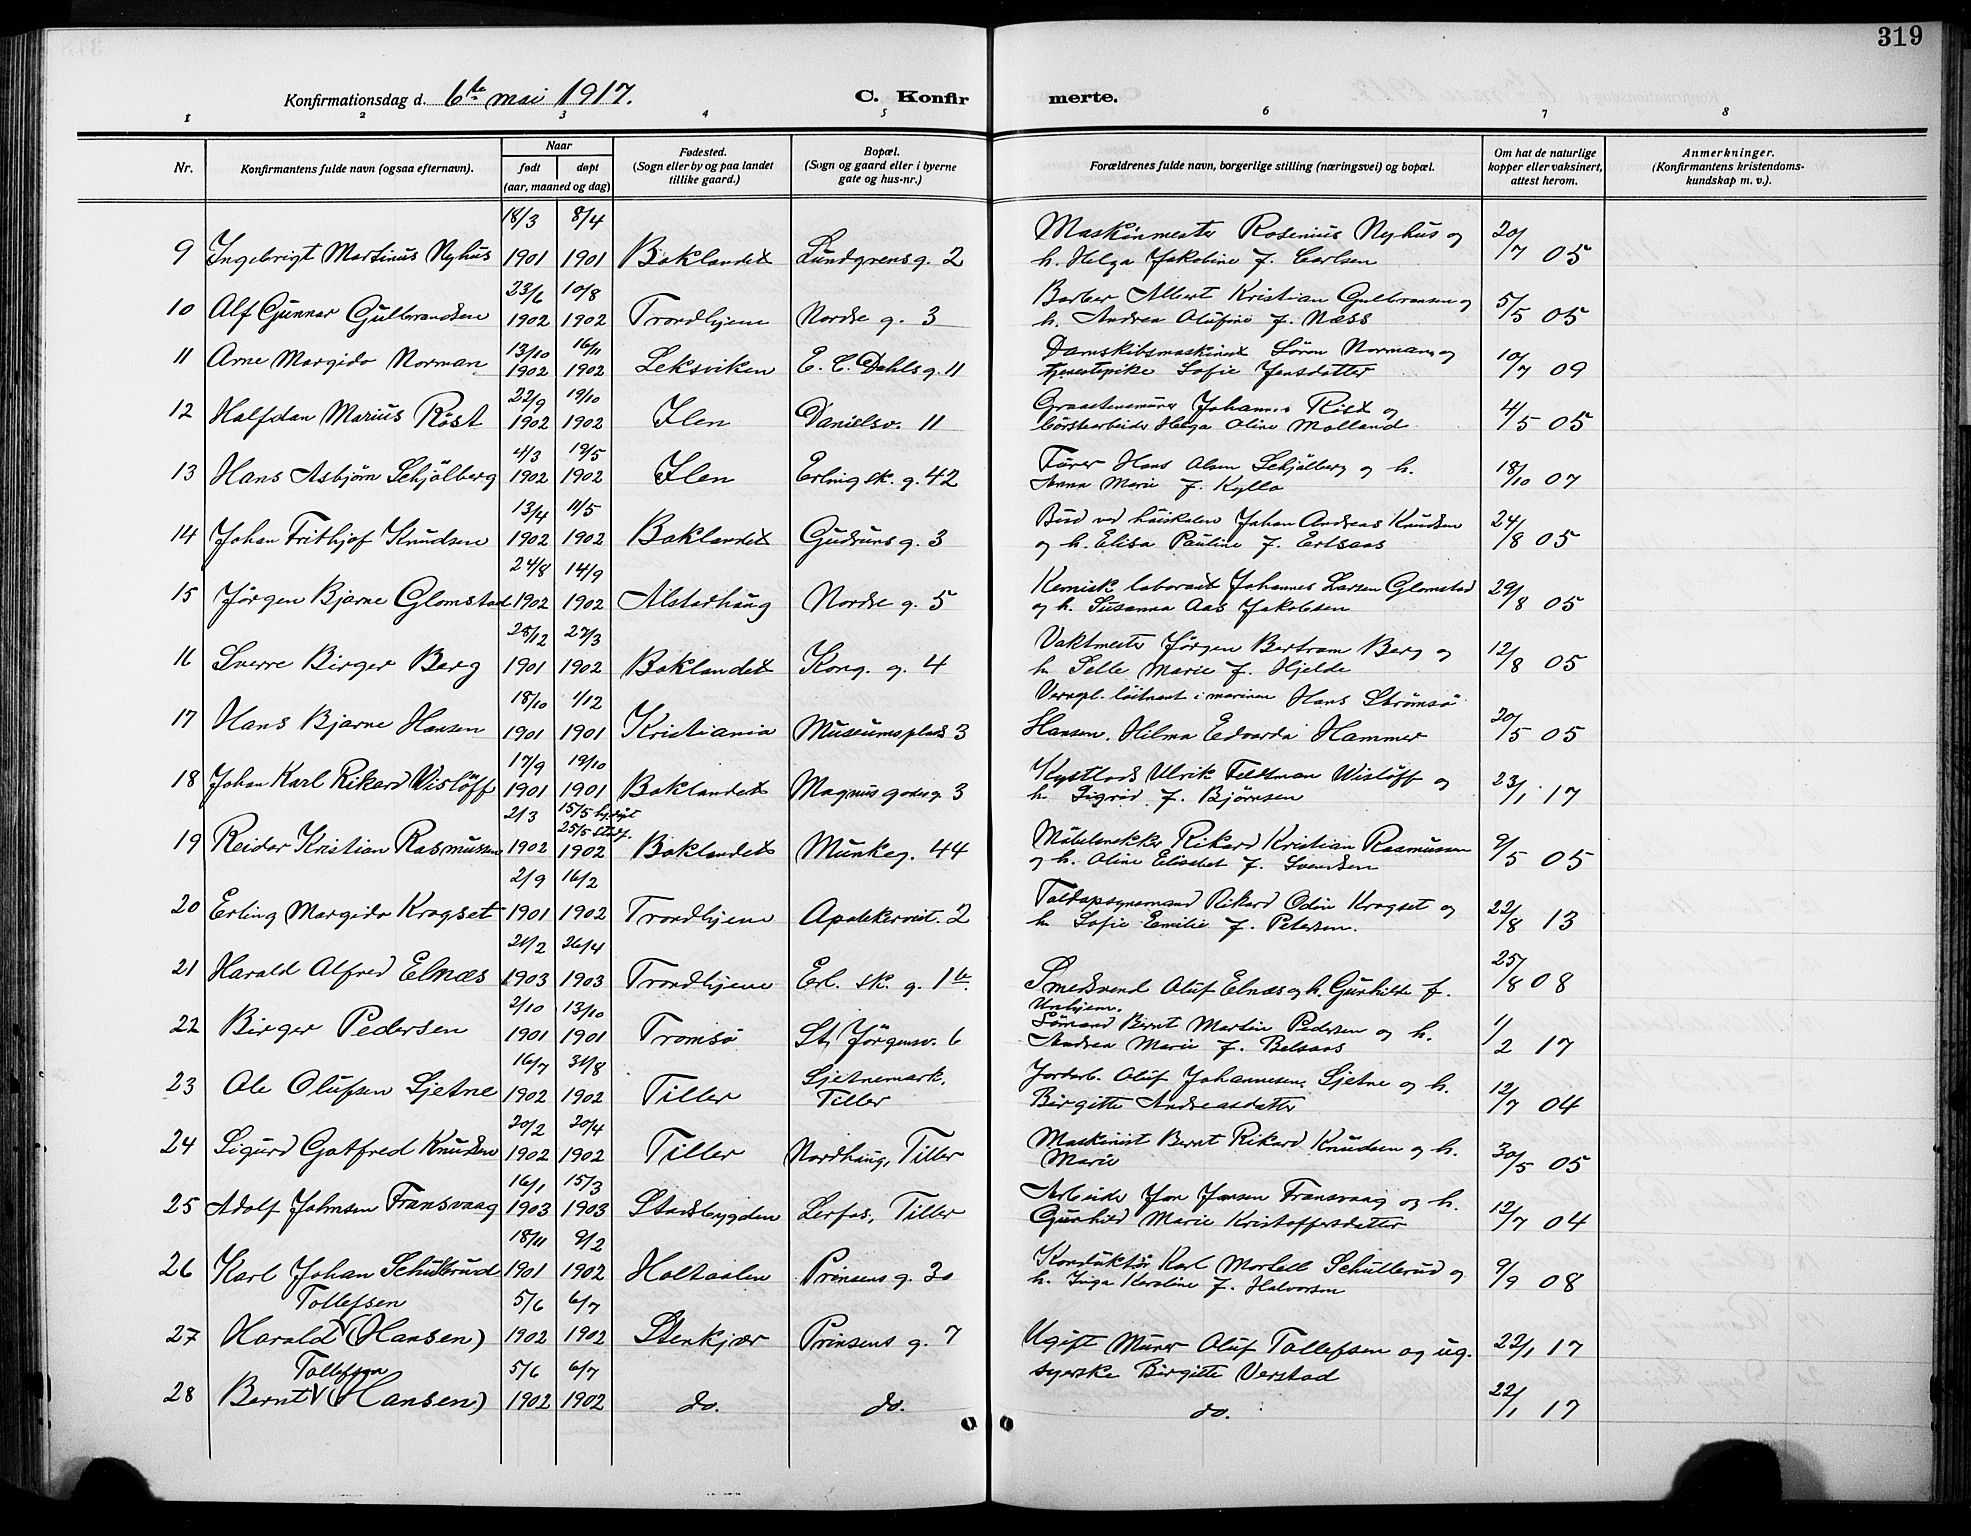 319
Konfirmationsdag d. 6te mai 1917. C. Konfir merte.
1 2 3 4 5 6 7 8
Nr. Konfirmantens fulde navn (ogsaa efternavn). Naar født døpt (aar, maaned og dag) Fødested. (Sogn eller by og paa landet tillike gaard.) Bopæl. (Sogn og gaard eller i byerne gate og hus-nr.) Forældrenes fulde navn, borgerlige stilling (næringsvei) og bopæl. Om hat de naturlige kopper eller vaksinert, attest herom. Anmerkninger. (Konfirmantens kristendoms-kundskap m. v.).
18/3 8/4 Maskinmester Rosenius Nyhus og 20/7 05
9 Ingebrigt Martinus Nyhus 1901 1901 Baklandet Lundgrensg. 2 h. Helga Jakobine f. Carlsen
23/6 10/8 Barber Albert Kristian Gulbransen og 5/5 05
10 Alf Gunnar Gulbrandsen 1902 1902 Trondhjem Nordre g. 3 h. Andrea Olufine f. Næss
13/10 16/11 Damskibsmaskinist Søren Norman og 10/7 09
11 Arne Margido Norman 1902 1902 Leksviken E. C. Dahls g. 11 tjenestepike Sofie Jensdatter
22/9 19/10 Graastensmurer Johannes Röst og 4/5 05
12 Halfdan Marius Röst 1902 1902 Ilen Danielsv. 11 börstearbeider Helga Oline Molland
4/3 19/5 Fører Hans Olsen Schjølberg og h. 18/10 07
13 Hans Asbjørn Schjölberg 1902 1902 Ilen Erling sk. g. 42 Anna Marie f. Kyllo
13/4 11/5 Bud ved höiskolen Johan Andreas Knudsen 24/8 05
14 Johan Frithjof Knudsen 1902 1902 Baklandet Gudruns g. 3 og h. Elisa Pauline f. Ertsaas
24/8 14/9 Kemisk laborant Johannes Larsen Glomstad 29/8 05
15 Jörgen Bjarne Glomstad 1902 1902 Alstadhaug Nordre g. 5 og h. Susanna Aas Jakobsen
25/12 27/3 Vaktmester Jørgen Bertram Berg og 12/8 05
16 Sverre Birger Berg 1901 1902 Baklandet Kong. g. 4 h. Selle Marie f. Hjelde
18/10 1/12 Vernepl. löitnant i marinen Hans Strömsö 20/5 05
17 Hans Bjarne Hansen 1901 1901 Kristiania Museumsplads 3 Hansen. Hilma Edvarda Hammer
17/9 19/10 Kystlods Ulrik Feldtman Wislöff og 23/1 17
18 Johan Karl Rikard Vislöff 1901 1901 Baklandet Magnus godes g. 3 h. Sigrid f. Bjørnsen
21/3 15/5 hj.døpt 25/5 stadf. Möbelsnekker Rikard Kristian Rasmussen 9/5 05
19 Reidar Kristian Rasmussen 1902 1902 Baklandet Munkeg. 44 og h. Oline Elisabet f. Svendsen
2/9 16/2 Toldopsynsmand Rikard Odin Krogset og 22/8 13
20 Erling Margido Krogset 1901 1902 Trondhjem Apotekerveit. 2 h. Sofie Emilie f. Petersen.
21/2 26/4 25/8 08
21 Harald Alfred Elnæs 1903 1903 Trondhjem Erl. sk. g. 1b. Smedsvend Oluf Elnæs og h. Gunhilde f. Unhjem.
2/10 13/10 Sömand Bernt Martin Pedersen og h. 1/2 17
22 Birger Pedersen 1901 1901 Tromsö St. Jörgensv. 6 Andrea Marie f. Belsaas
16/7 31/8 Sjetnemark. Jordarb. Oluf Johannesen Sjetne og h. 12/7 04
23 Ole Olufsen Sjetne 1902 1902 Tiller Tiller Birgitte Andreasdatter
20/2 20/4 Maskinist Bernt Rikard Knudsen og h. 30/5 05
24 Sigurd Gotfred Knudsen 1902 1902 Tiller Nordhaug, Tiller Marie
16/1 15/3 Arbeider Jon Jensen Fransvaag og h. 12/7 04
25 Adolf Johnsen Fransvaag 1903 1903 Stadsbygden Lerfos, Tiller Gunhild Marie Kristoffersdatter
18/11 9/2 Konduktør Karl Mortell Schullerud og 9/9 08
26 Karl Johan Schullerud 1901 1902 Holtaalen Prinsens g. 30 h. Inga Karoline f. Halvorsen
Tollefsen 5/6 6/7
27 Harald V (Hansen) 1902 1902 Stenkjær Prinsens g. 7 Ugift Murer Oluf Tollefsen og ug. 22/1 17
Tollefsen 5/6 6/7 syerske Birgitte Verstad
28 Bernt V (Hansen) 1902 1902 do. do. do. 22/1 17